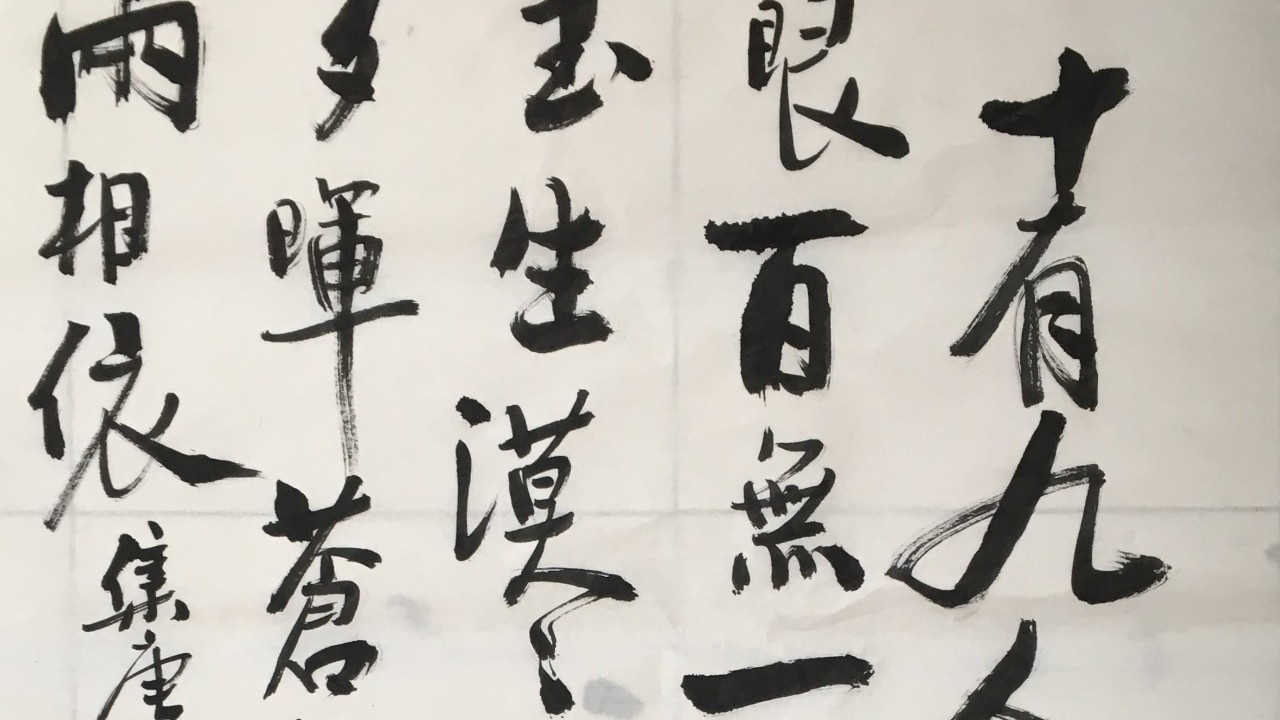 十有九人
眼百無一
生漠々
夕暉蒼
兩相依
集唐